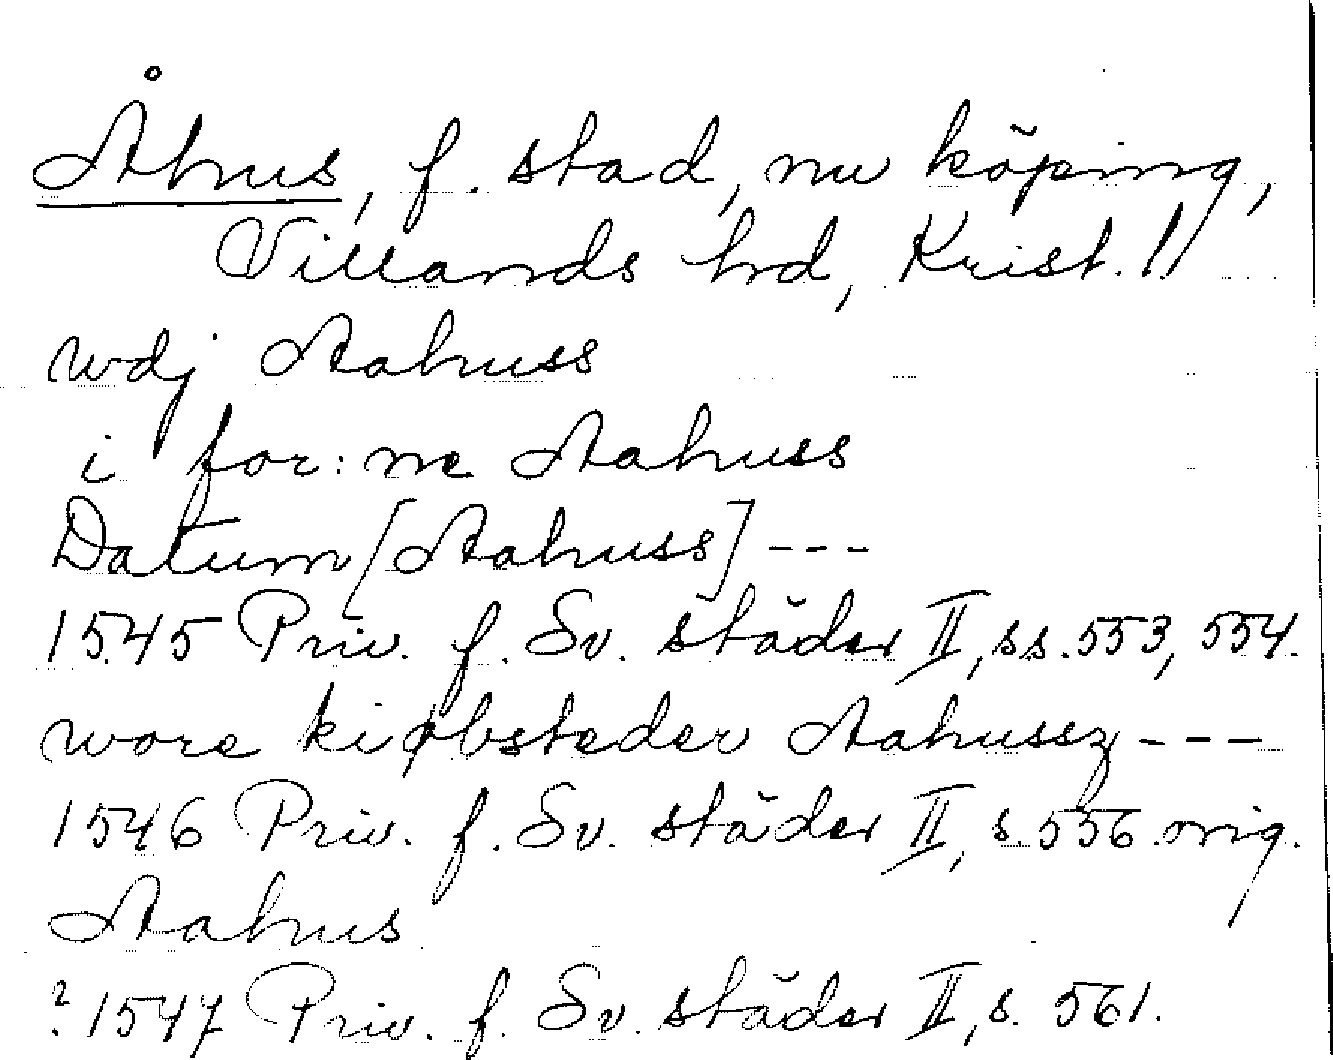 Åhus, f. stad, nu köping,
Villands hd, Krist. l.
wdj Aahuss
i for:ne Aahuss
Datum [Aahuss] ---
1545 Priv. f. Sv. städer II, ss. 553, 554.
wore kiøbsteder Aahussz ---
1546 Priv. f. Sv. städer II, s. 556. orig.
Aahus
? 1547 Priv. f. Sv. städer II, s. 561.